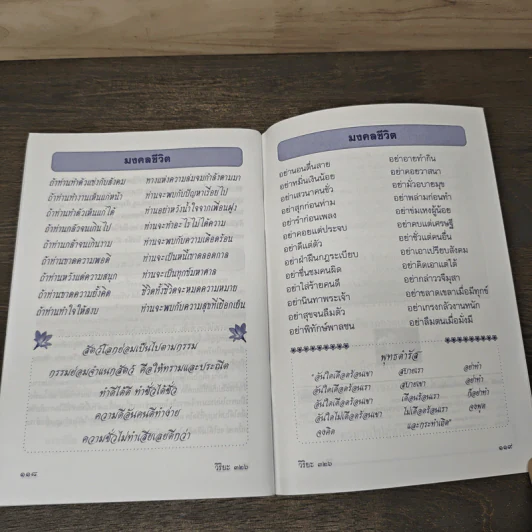 มงคลชีวิต
ถ้าท่านทำตัวเช่ากับสังคม ทางแห่งความล่มจมกำลังตามมา
ถ้าท่านทำงานเห็นแก่หน้า ท่านจะพบกับปัญหาเรื่อยไป
ถ้าท่านทำตัวเห็นแก่ได้ ท่านอย่าหวังน้ำใจจากเพื่อนฝูง
ถ้าท่านกลัวจนเกินไป ท่านจะทำอะไรไม่ได้ความ
ถ้าท่านกลัวจนเกินงาม ท่านจะพบกับความเดือดร้อน
ถ้าท่านขาดความพอดี ท่านจะเป็นหนี้เขาตลอดกาล
ถ้าท่านหวังแต่ความสนุก ท่านจะเป็นทุกข์มหาศาล
ถ้าท่านขาดความยั้งคิด ชีวิตทั้งชีวิตจะหมดความหมาย
ถ้าท่านทำใจให้สงบ ท่านจะพบกับความสุขที่เยือกเย็น
สัตว์โลกย่อมเป็นไปตามกรรม
กรรมย่อมจำแนกสัตว์ คือให้ทรามและประณีต
ทำดีได้ดี ทำชั่วได้ชั่ว
ความดีอันคนดีทำง่าย
ความชั่วไม่ทำเสียเลยดีกว่า
๑๑๘ วิริยะ ๓๒๖
มงคลชีวิต
อย่านอนตื่นสาย อย่าอายทำกิน
อย่าหมิ่นเงินน้อย อย่าคอยวาสนา
อย่าเสวนาคนชั่ว อย่ามั่วอบายมุข
อย่าสุกก่อนห่าม อย่าพล่ามก่อนทำ
อย่ารำก่อนเพลง อย่าข่มเหงผู้น้อย
อย่าคอยแต่ประจบ อย่าคบแต่เศรษฐี
อย่าดีแต่ตัว อย่าชั่วแต่คนอื่น
อย่าฝ่าฝืนกฎระเบียบ อย่าเอาเปรียบสังคม
อย่าชื่นชมคนผิด อย่าคิดเอาแต่ได้
อย่าใส่ร้ายคนดี อย่ากล่าววจีมุสา
อย่านินทาพระเจ้า อย่าขลาดเขลาเมื่อมีทุกข์
อย่าสุขจนลืมตัว อย่าเกรงกลัวงานหนัก
อย่าพิทักษ์พาลชน อย่าลืมตนเมื่อมั่งมี
พุทธดำรัส
"อันใดเดือดร้อนเขา สบายเรา อย่าทำ
อันใดเดือดร้อนเรา สบายเขา อย่าทำ
อันใดเดือดร้อนเขา เดือนร้อนเรา ก็อย่าทำ
อันใดไม่เดือดร้อนเขา ไม่เดือดร้อนเรา จงพูด
จงคิด และกระทำเถิด"
วิริยะ ๓๒๖ ๑๑๙